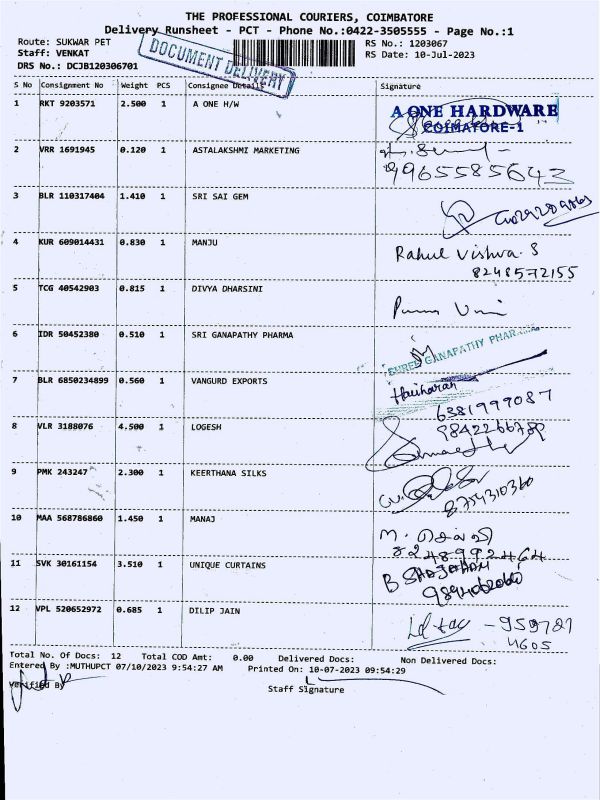 THE PROFESSIONAL COURIERS, COIMBATORE
Delivery Runsheet - PCT - Phone No.:0422-3505555 - Page No.:1
Route: SUKWAR PET RS No.: 1203067
Staff: VENKAT RS Date: 10-Jul-2023
DRS No.: DCJB120306701
DOCUMENT DELIVERY
S No Consignment No Weight PCS Consignee Details Signature
1 RKT 9203571 2.500 1 A ONE H/W A ONE HARDWARE
COIMATORE-1
2 VRR 1691945 0.120 1 ASTALAKSHMI MARKETING
9965585643
3 BLR 110317404 1.410 1 SRI SAI GEM
4 KUR 609014431 0.830 1 MANJU Rahul Vishva. S
8248572155
5 TCG 40542903 0.815 1 DIVYA DHARSINI
6 IDR 50452380 0.510 1 SRI GANAPATHY PHARMA SHREE GANAPATHY PHARMA
7 BLR 6850234899 0.560 1 VANGURD EXPORTS Hariharan
6381999087
8 VLR 3188076 4.500 1 LOGESH 9842266789
9 PMK 243247 2.300 1 KEERTHANA SILKS
8754310360
10 MAA 568786860 1.450 1 MANAJ
8248992464
11 SVK 30161154 3.510 1 UNIQUE CURTAINS B SHAJAHAN
12 VPL 520652972 0.685 1 DILIP JAIN - 959789
4605
Total No. Of Docs: 12 Total COD Amt: 0.00 Delivered Docs: Non Delivered Docs:
Entered By :MUTHUPCT 07/10/2023 9:54:27 AM Printed On: 10-07-2023 09:54:29
Verified By
Staff Signature